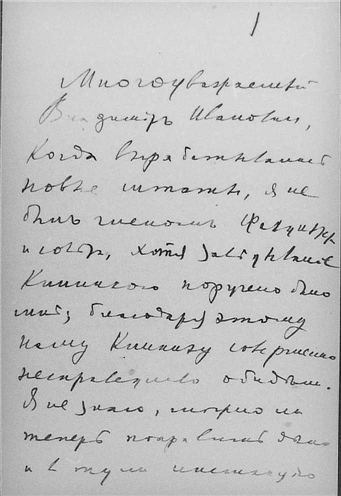 1
Многоуважаемый
Владимиръ Ивановичъ,
Когда вырабатывались
новые штаты, я не
былъ членомъ
и совѣта, хотя завѣдываніе
Клиникою поручено было
мнѣ; благодаря этому
нашу Клинику совершенно
несправедливо обидѣли.
Я не знаю, можно ли
теперь поправить дѣло
и въ